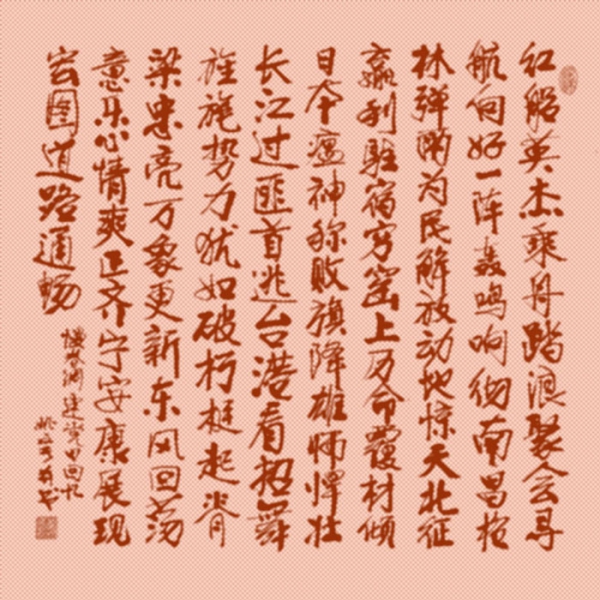 红船英杰乘舟踏浪聚会寻
航向好一阵轰鸣响彻南昌抢
林弹雨为民解放动地惊天北征
赢利驻宿穷窑上万命覆材倾
日本瘟神称败旗降雄师悍壮
长江过匪首逃台港看招舞
旌旄势力犹如破朽梃起脊
梁忠亮万象更新东风回荡
意乐心情爽正齐宁安康展现
宏图道路通畅
建党 回忆